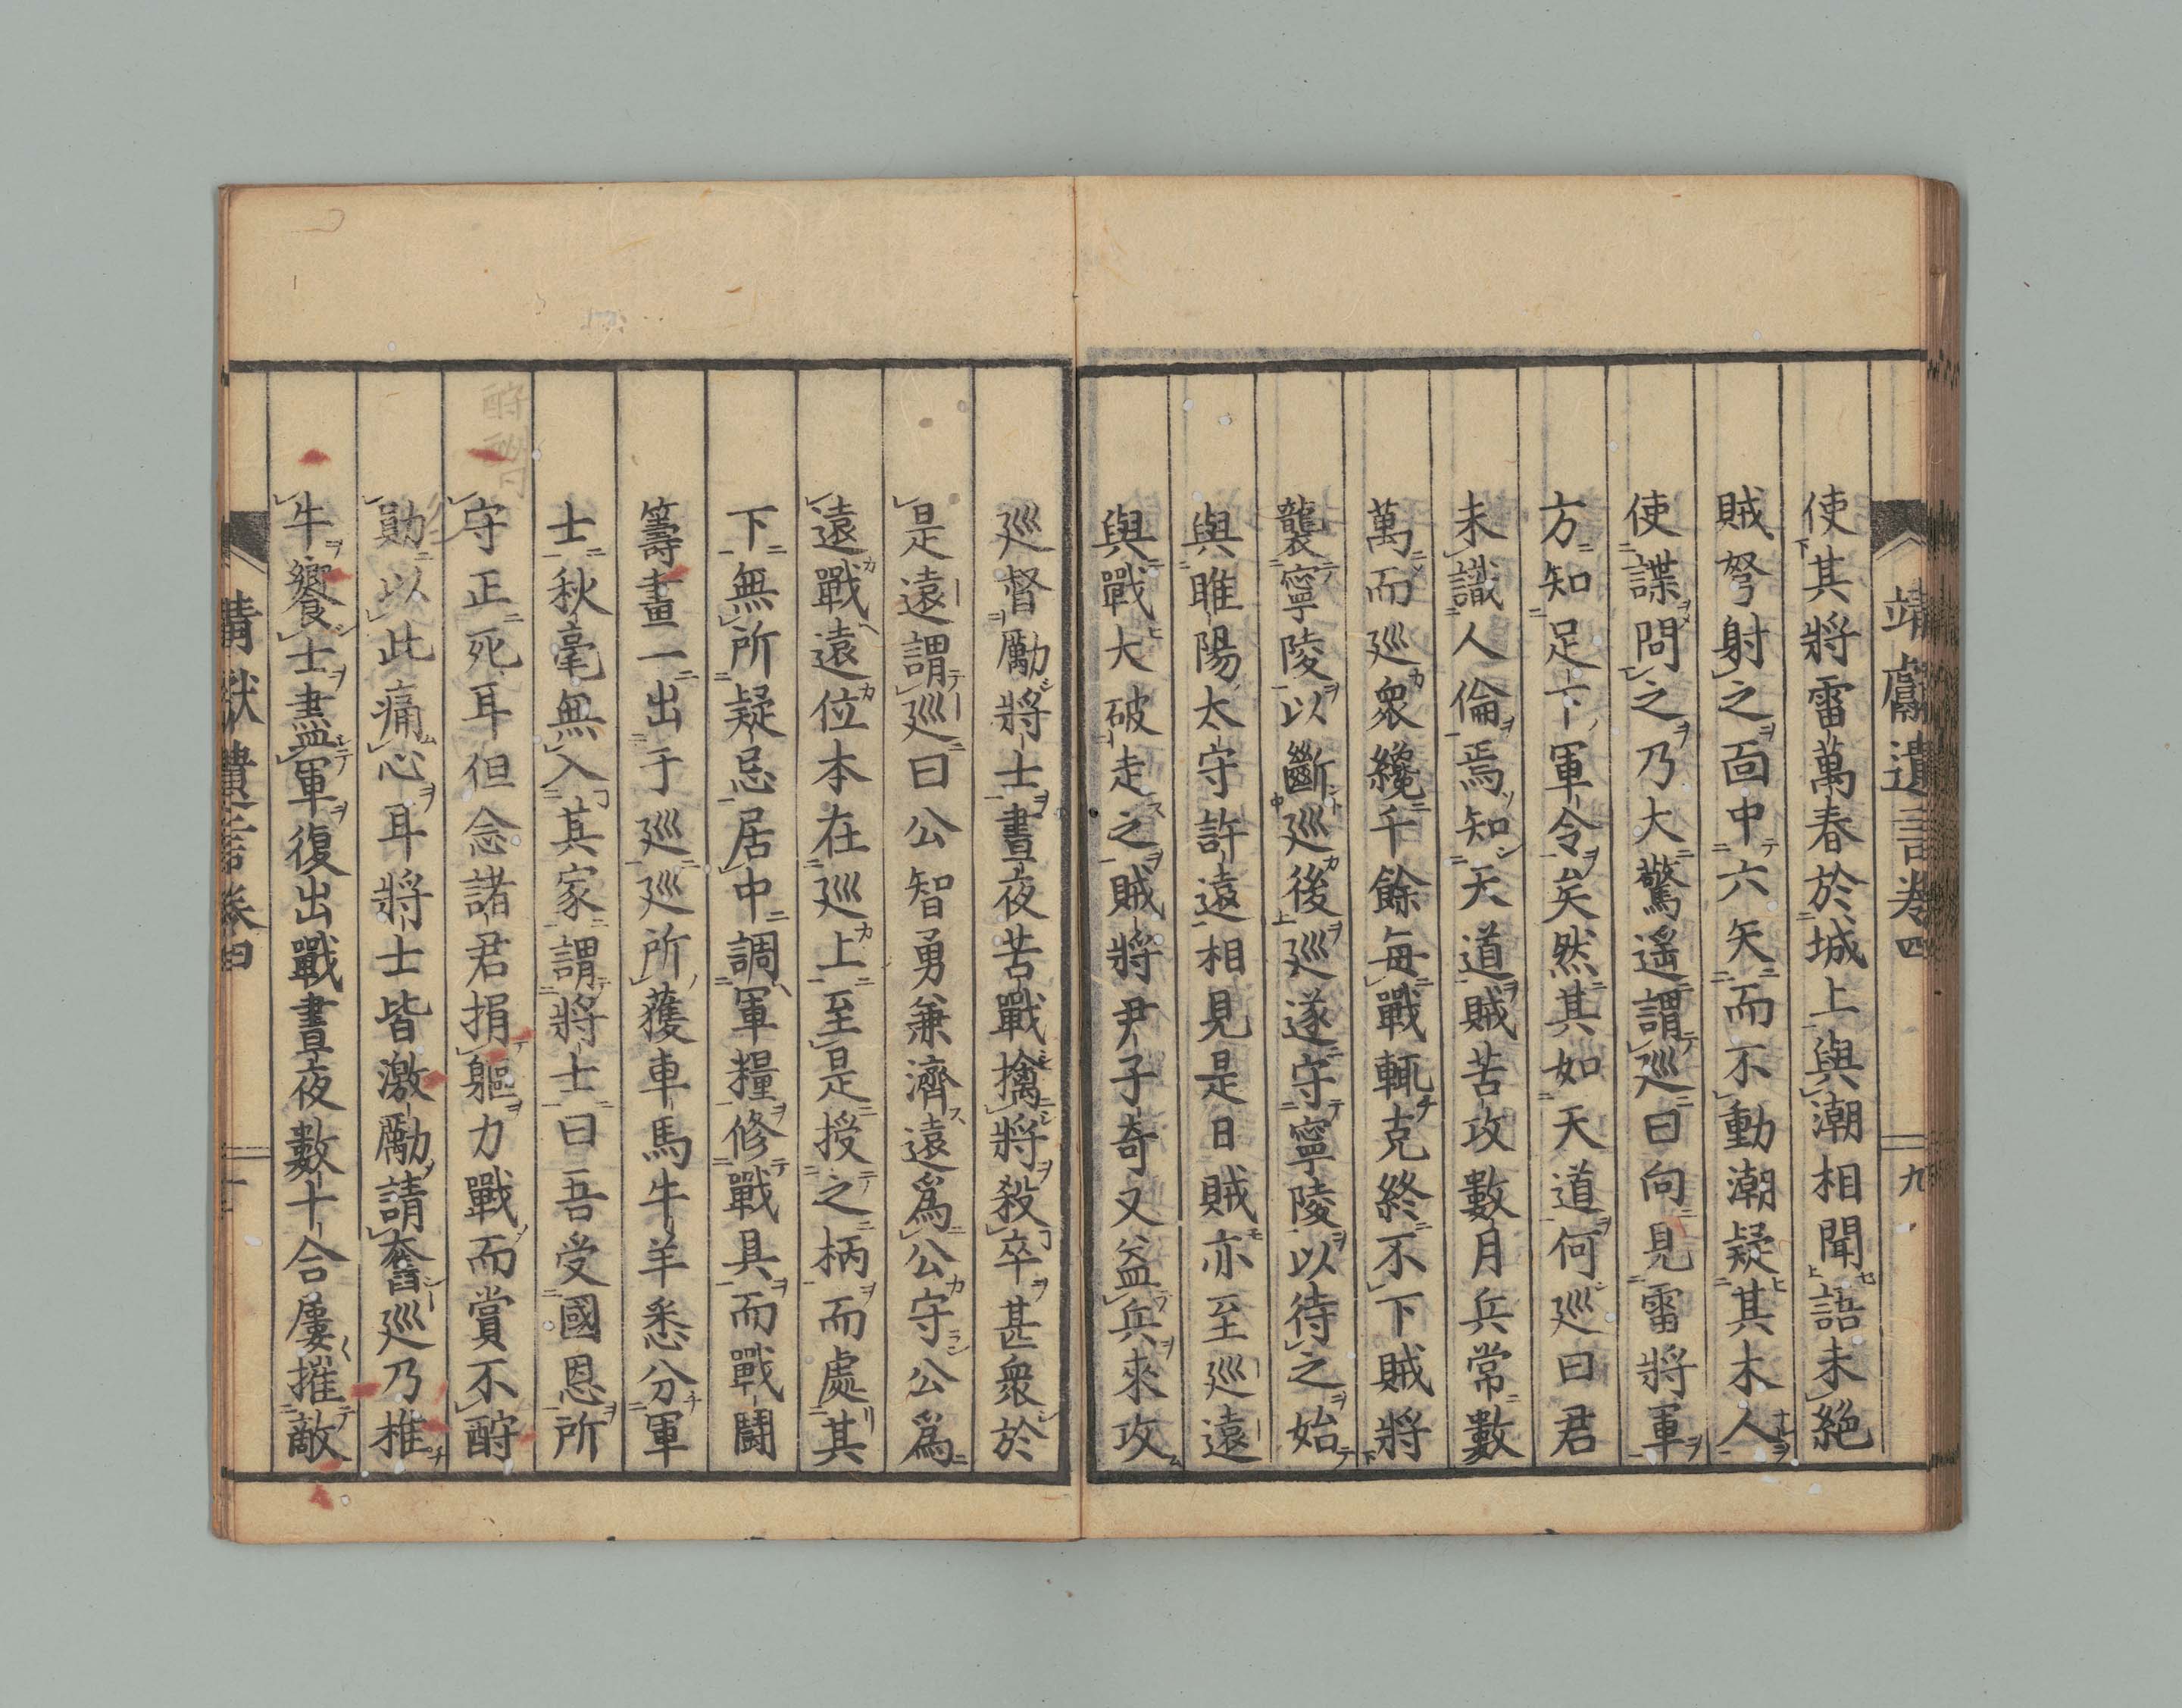 靖獻遺言卷四
九
使其將雷萬春於城上與潮相聞語未絕
賊弩射之面中六矢而不動潮疑其木人
使諜問之乃大驚遥謂巡曰向見雷將軍
方知足下軍令矣然其如天道何巡曰君
未識人倫焉知天道賊苦攻數月兵常數
萬而巡衆纔千餘每戰輒克終不下賊將
襲寧陵以斷巡後巡遂守寧陵以待之始
與睢陽太守許遠相見是日賊亦至巡遠
與戰大破走之賊將尹子奇又益兵來攻
巡督勵將士晝夜苦戰擒將殺卒甚衆於
是遠謂巡曰公智勇兼濟遠爲公守公爲
遠戰遠位本在巡上至是授之柄而處其
下無所疑忌居中調軍糧修戰具而戰鬪
籌畫一出于巡巡所獲車馬牛羊悉分軍
士秋毫無入其家謂將士曰吾受國恩所
守正死耳但念諸君捐軀力戰而賞不酧
勛以此痛心耳將士皆激勵請奮巡乃椎
牛饗士盡軍復出戰晝夜數十合屢摧敵
靖獻遺言卷四